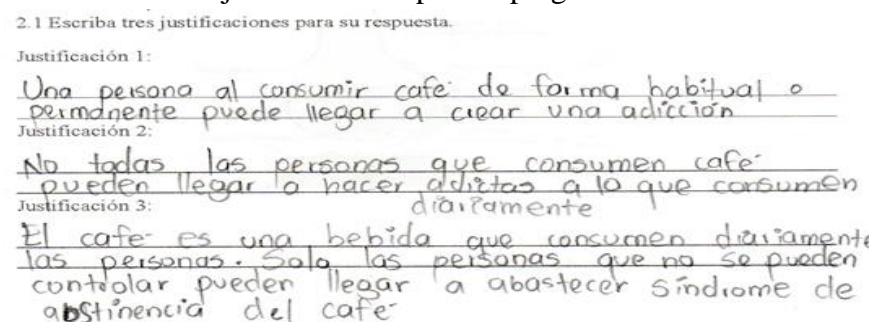 2.1 Escriba tres justificaciones para su respuesta.
Justificación 1:
Una persona al consumir cafe de forma habitual o
permanente puede llegar a crear una adicción
Justificación 2:
No todas las personas que consumen cafe
pueden llegar a hacer adictas a lo que consumen
diariamente
Justificación 3:
El cafe es una bebida que consumen diariamente
las personas. Solo las personas que no se pueden
controlar pueden llegar a abastecer síndrome de
abstinencia del cafe